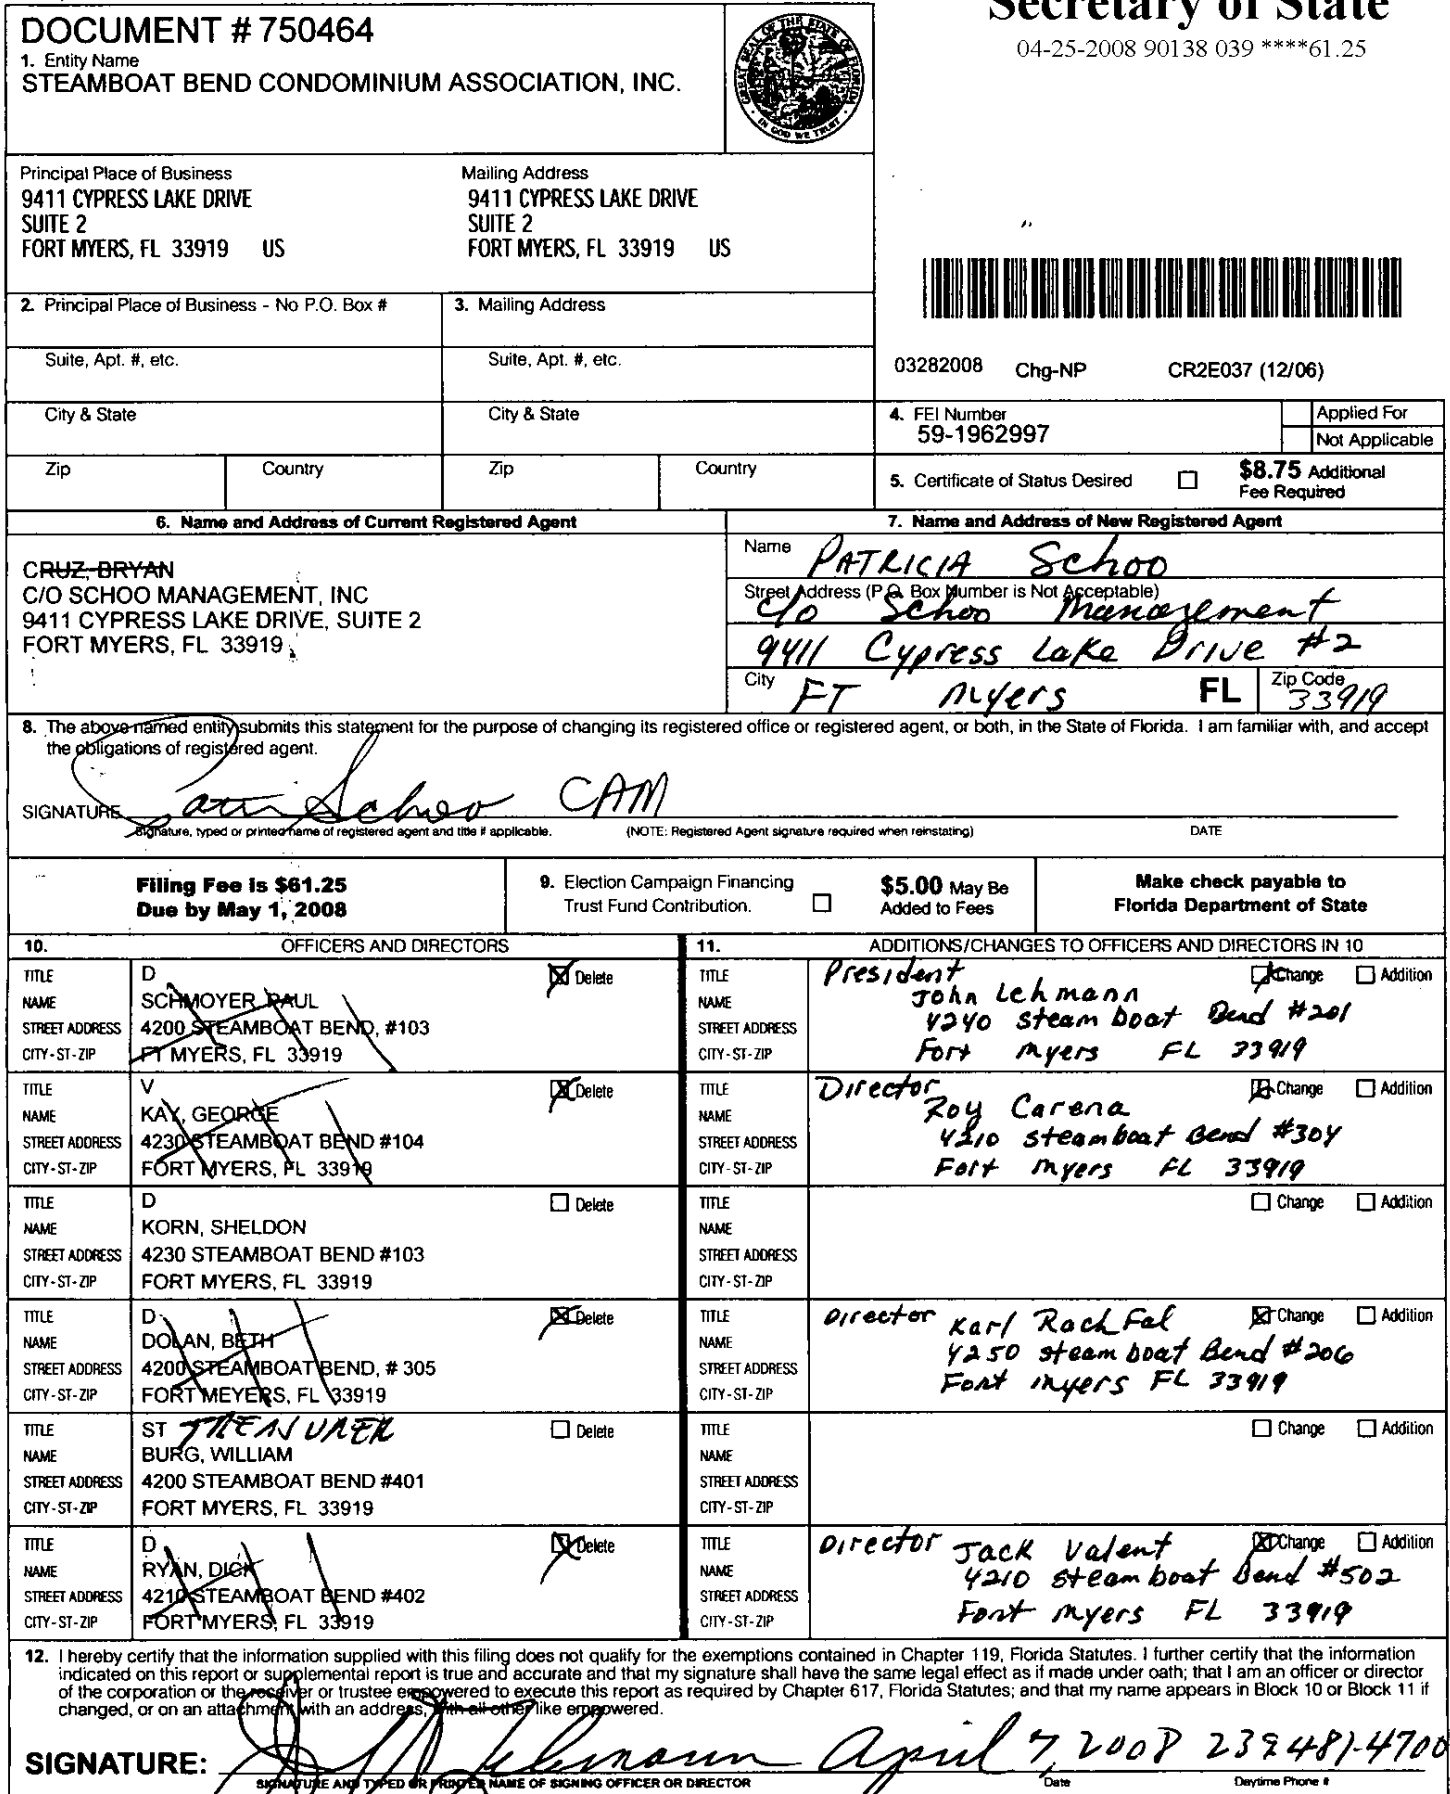 Secretary of State
04-25-2008 90138 039 ****61.25
DOCUMENT # 750464
1. Entity Name
STEAMBOAT BEND CONDOMINIUM ASSOCIATION, INC.
GREAT SEAL OF THE STATE OF FLORIDA
IN GOD WE TRUST
Principal Place of Business Mailing Address
9411 CYPRESS LAKE DRIVE 9411 CYPRESS LAKE DRIVE
SUITE 2 SUITE 2
FORT MYERS, FL 33919 US FORT MYERS, FL 33919 US
2. Principal Place of Business - No P.O. Box # 3. Mailing Address
Suite, Apt. #, etc. Suite, Apt. #, etc.
03282008 Chg-NP CR2E037 (12/06)
City & State City & State
4. FEI Number
59-1962997
Applied For
Not Applicable
Zip Country Zip Country
5. Certificate of Status Desired
$8.75 Additional
Fee Required
6. Name and Address of Current Registered Agent
CRUZ, BRYAN
C/O SCHOO MANAGEMENT, INC
9411 CYPRESS LAKE DRIVE, SUITE 2
FORT MYERS, FL 33919
7. Name and Address of New Registered Agent
Name PATRICIA Schoo
Street Address (P.O. Box Number is Not Acceptable)
c/o Schoo Management
9411 Cypress Lake Drive #2
City FT Myers FL Zip Code 33919
8. The above named entity submits this statement for the purpose of changing its registered office or registered agent, or both, in the State of Florida. I am familiar with, and accept
the obligations of registered agent.
SIGNATURE Patti Schoo CAM
Signature, typed or printed name of registered agent and title if applicable. (NOTE: Registered Agent signature required when reinstating) DATE
Filing Fee is $61.25
Due by May 1, 2008
9. Election Campaign Financing
Trust Fund Contribution.
$5.00 May Be
Added to Fees
Make check payable to
Florida Department of State
10. OFFICERS AND DIRECTORS
TITLE D Delete
NAME SCHMOYER, PAUL
STREET ADDRESS 4200 STEAMBOAT BEND, #103
CITY-ST-ZIP FT MYERS, FL 33919
TITLE V Delete
NAME KAY, GEORGE
STREET ADDRESS 4230 STEAMBOAT BEND #104
CITY-ST-ZIP FORT MYERS, FL 33919
TITLE D Delete
NAME KORN, SHELDON
STREET ADDRESS 4230 STEAMBOAT BEND #103
CITY-ST-ZIP FORT MYERS, FL 33919
TITLE D Delete
NAME DOLAN, BETH
STREET ADDRESS 4200 STEAMBOAT BEND, # 305
CITY-ST-ZIP FORT MEYERS, FL 33919
TITLE ST TREASURER Delete
NAME BURG, WILLIAM
STREET ADDRESS 4200 STEAMBOAT BEND #401
CITY-ST-ZIP FORT MYERS, FL 33919
TITLE D Delete
NAME RYAN, DICK
STREET ADDRESS 4210 STEAMBOAT BEND #402
CITY-ST-ZIP FORT MYERS, FL 33919
11. ADDITIONS/CHANGES TO OFFICERS AND DIRECTORS IN 10
TITLE President Change Addition
NAME John Lehmann
STREET ADDRESS 4240 Steam boat Bend #201
CITY-ST-ZIP Fort Myers FL 33919
TITLE Director Change Addition
NAME Roy Carena
STREET ADDRESS 4210 Steamboat Bend #304
CITY-ST-ZIP Fort Myers FL 33919
TITLE Change Addition
NAME
STREET ADDRESS
CITY-ST-ZIP
TITLE Director Change Addition
NAME Karl Rachfal
STREET ADDRESS 4250 Steam boat Bend #206
CITY-ST-ZIP Fort Myers FL 33919
TITLE Change Addition
NAME
STREET ADDRESS
CITY-ST-ZIP
TITLE Director Change Addition
NAME Jack Valent
STREET ADDRESS 4210 Steam boat Bend #502
CITY-ST-ZIP Fort Myers FL 33919
12. I hereby certify that the information supplied with this filing does not qualify for the exemptions contained in Chapter 119, Florida Statutes. I further certify that the information
indicated on this report or supplemental report is true and accurate and that my signature shall have the same legal effect as if made under oath; that I am an officer or director
of the corporation or the receiver or trustee empowered to execute this report as required by Chapter 617, Florida Statutes; and that my name appears in Block 10 or Block 11 if
changed, or on an attachment with an address, with all other like empowered.
SIGNATURE: Lehmann April 7, 2008 239 481-4700
SIGNATURE AND TYPED OR PRINTED NAME OF SIGNING OFFICER OR DIRECTOR Date Daytime Phone #